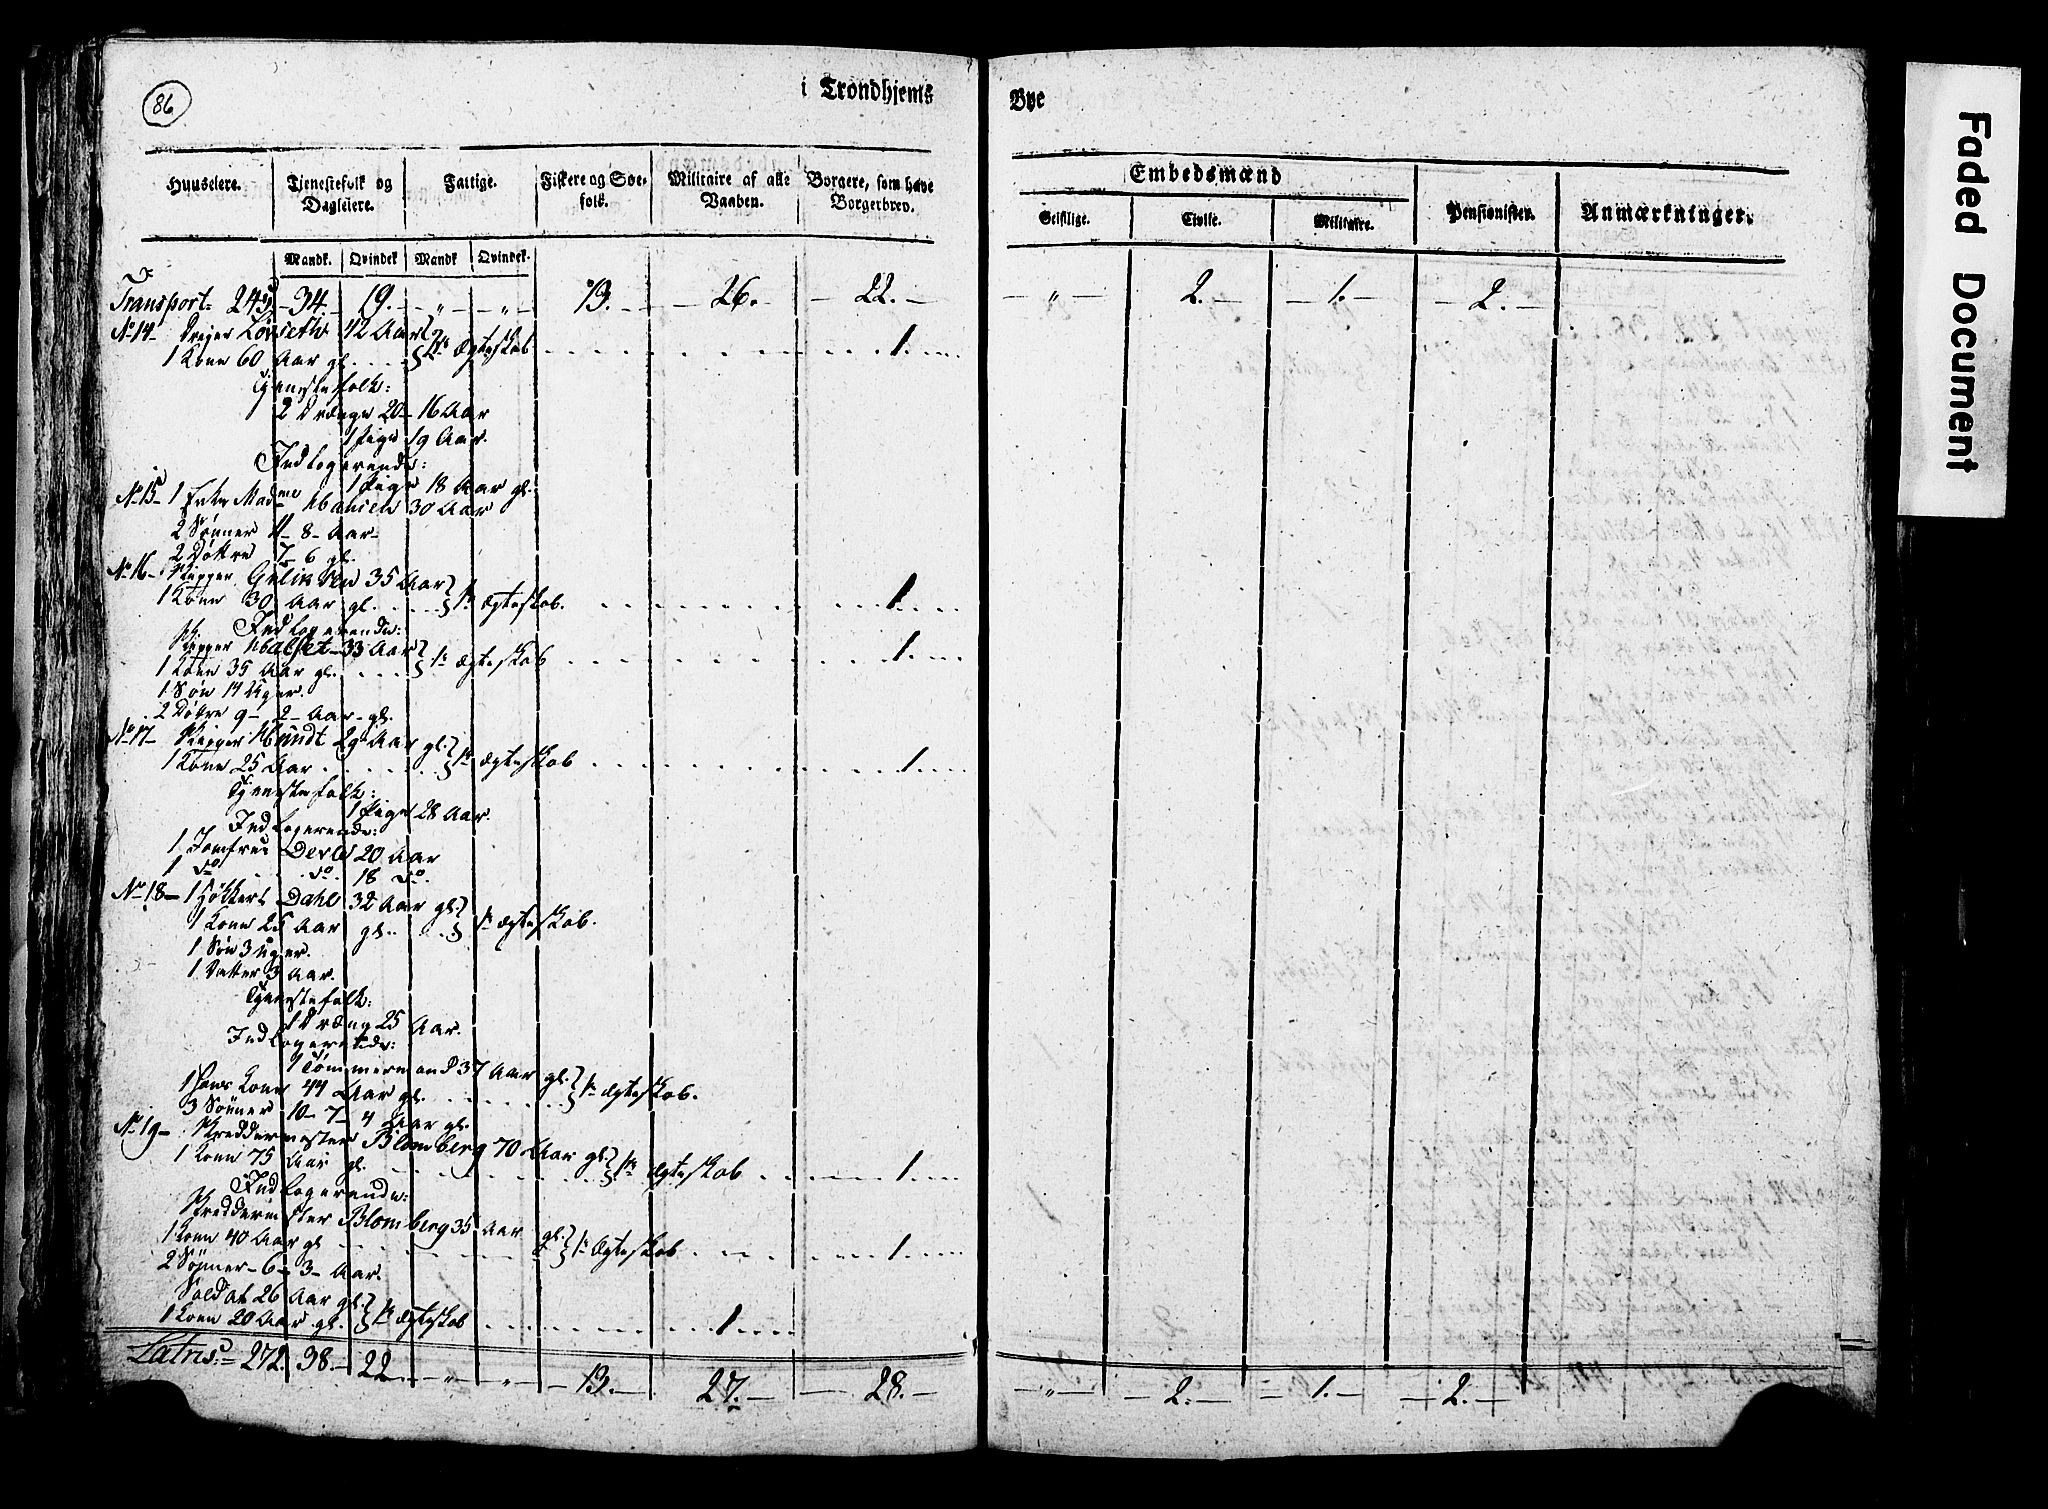 86
i Trondhjems Bye
Huuseiere. Tjenestefolk og Dagleiere. Fattige. Fiskere og Søefolk. Militaire af alle Vaaben. Borgere, som have Borgerbrev. Embedsmænd Pensionister. Anmærkninger.
Geistlige. Civile. Militaire.
Mandk. Qvindek Mandk Qvindek.
Transport 34. 19. " " 13. 26. 22. " 2. 1. 2.
No 14 Løvseth 42 Aar
1 Kone 60 Aar gl. 1ste Ægteskab 1.
Tjenestefolk:
2 Drænge 20 - 16 Aar
1 Pige 19 Aar.
Indlogerende:
1 Pige 18 Aar gl.
No 15 1 Enke Madme Hansen 30 Aar
2 Sønner 11 - 8 - Aar
2 Døttre 7 - 6 gl.
No 16 Skipper 35 Aar
1 Kone 30 Aar gl. 1ste Ægteskab. 1.
Indlogerende:
Skipper Halset 33 Aar
1 Kone 35 Aar gl. 1ste Ægteskab 1.
1 Søn 14 Uger.
2 Døttre 9 - 2 - Aar - gl.
No 17 Skipper Hundt 29 Aar gl.
1 Kone 25 Aar 1ste Ægteskab 1.
Tjenestefolk:
1 Pige 28 Aar.
Indlogerende:
1 Jomfrue Derle 20 Aar
1 do do. 18 do.
No 18 1 Høkker Dahl 32 Aar gl.
1 Kone 25 Aar gl. 1ste Ægteskab.
1 Søn 3 Uger.
1 Datter 3 Aar.
Tjenestefolk:
1 Dræng 25 Aar.
Indlogerende:
1 Tømmermand 37 Aar gl.
1 Hans Kone 44 Aar gl. 1ste Ægteskab.
3 Sønner 10 - 7 - 4 Aar gl.
No 19 Skreddermester Blomberg 70 Aar gl.
1 Kone 75 Aar gl. 1ste Ægteskab 1.
Indlogerende:
Skreddermester Blomberg 35 Aar gl.
1 Kone 40 Aar gl 1ste Ægteskab 1.
2 Sønner - 6 - 3 - Aar.
Soldat 26 Aar gl.
1 Kone 20 Aar gl. 1ste Ægteskab 1.
Latris 272. 38. 22 " " 13. 27. 28. " 2. 1. 2.
Faded Document